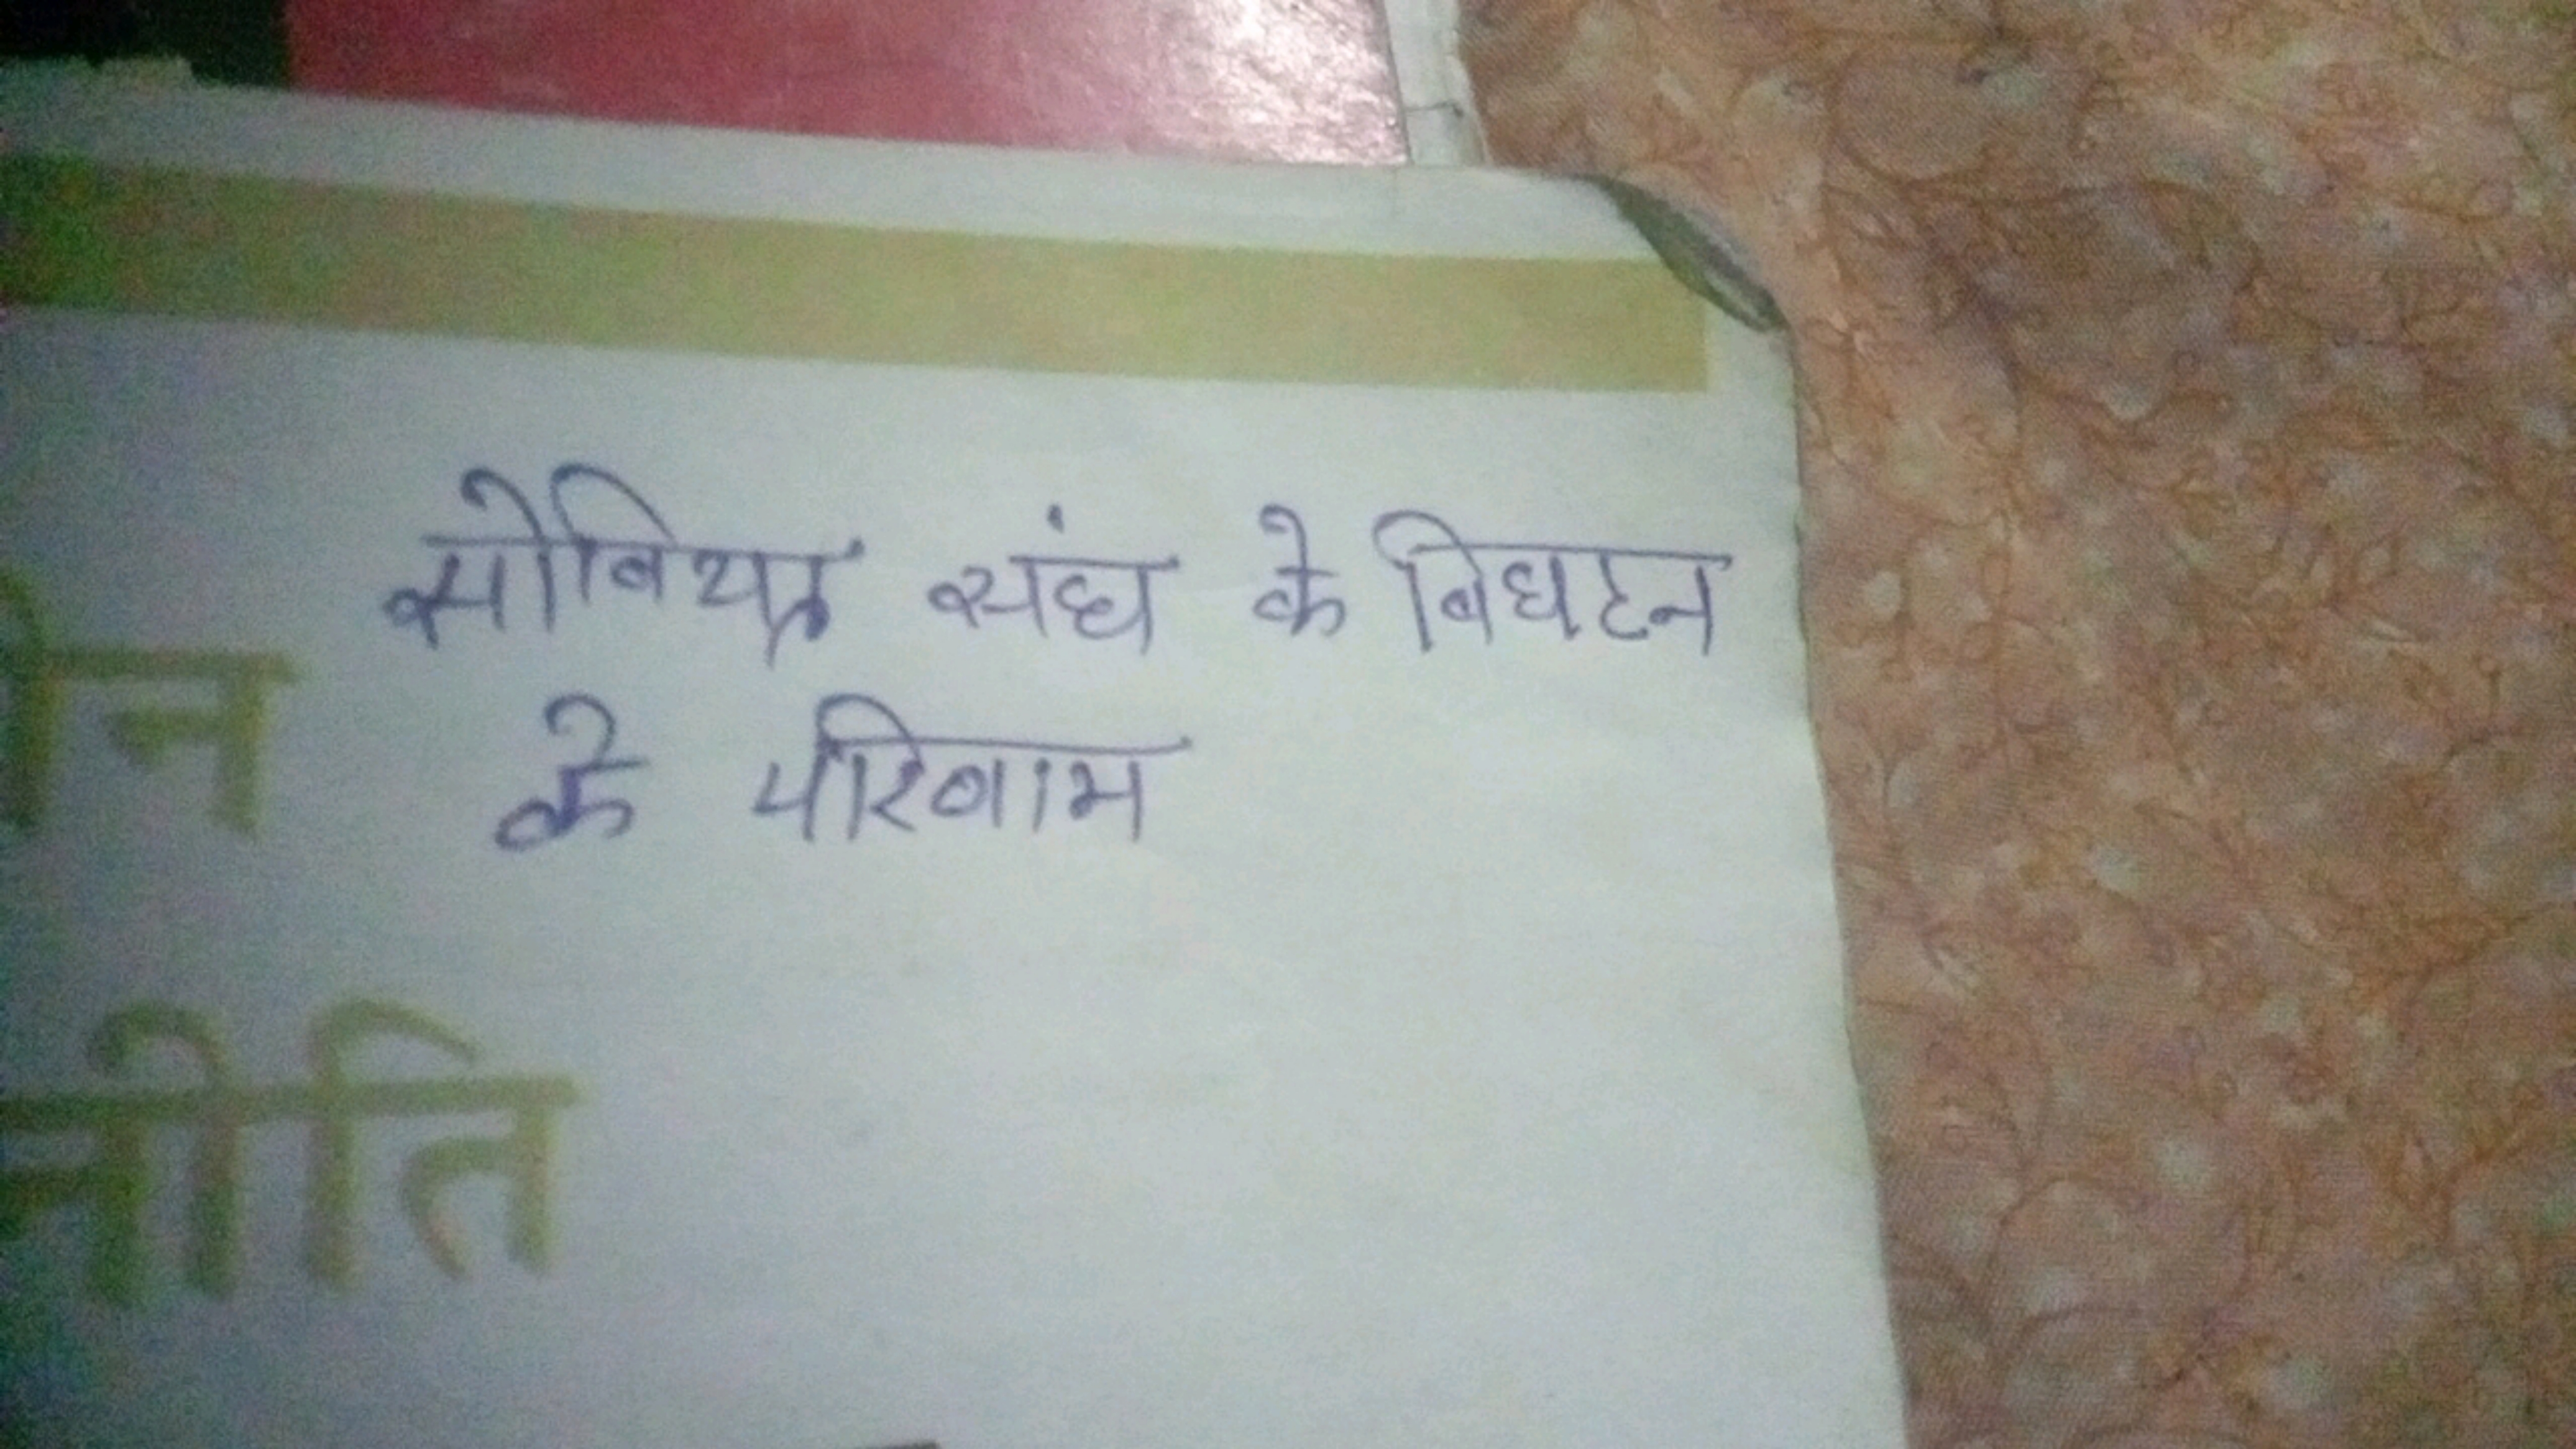 सोवियत संघ के विघटन
के परिणाम